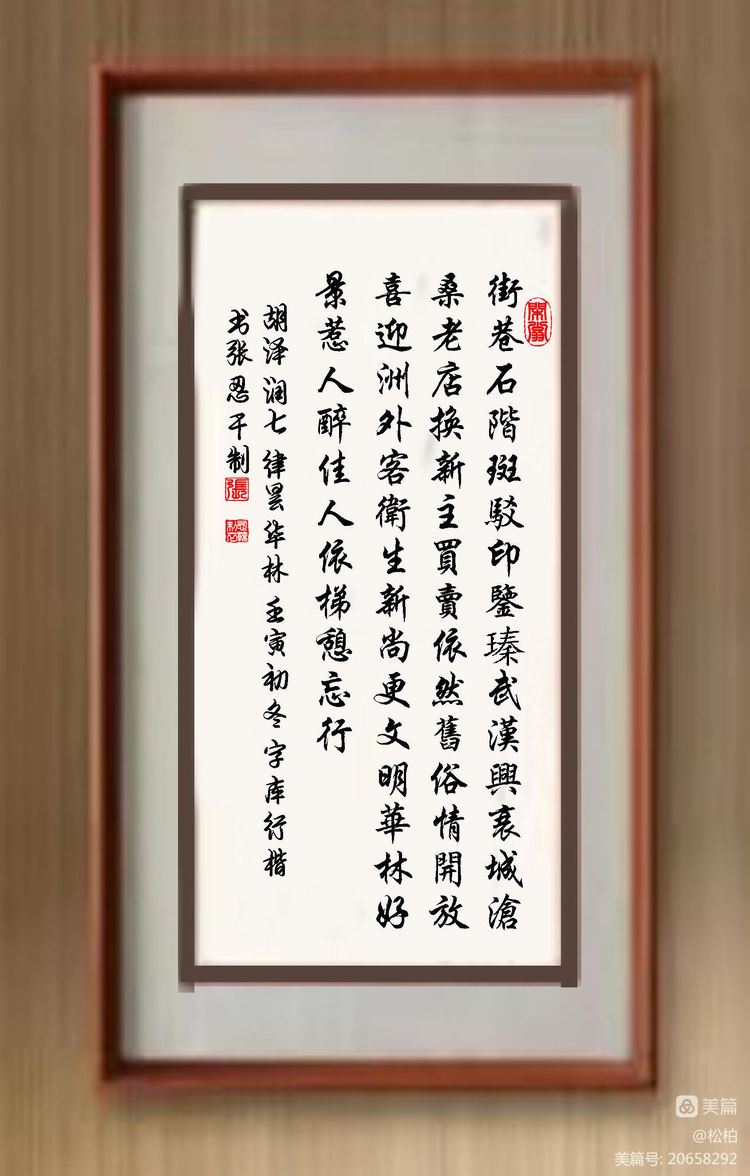 街巷石階斑駁印鑒瑧武漢興衰城滄
桑老店換新主買賣依然舊俗情開放
喜迎洲外客衛生新尚更文明華林好
景惹人醉佳人依梯憩忘行
胡泽润七律昙华林壬寅初冬字库行楷
书张忍干制
美篇
@松柏
美篇号: 20658292